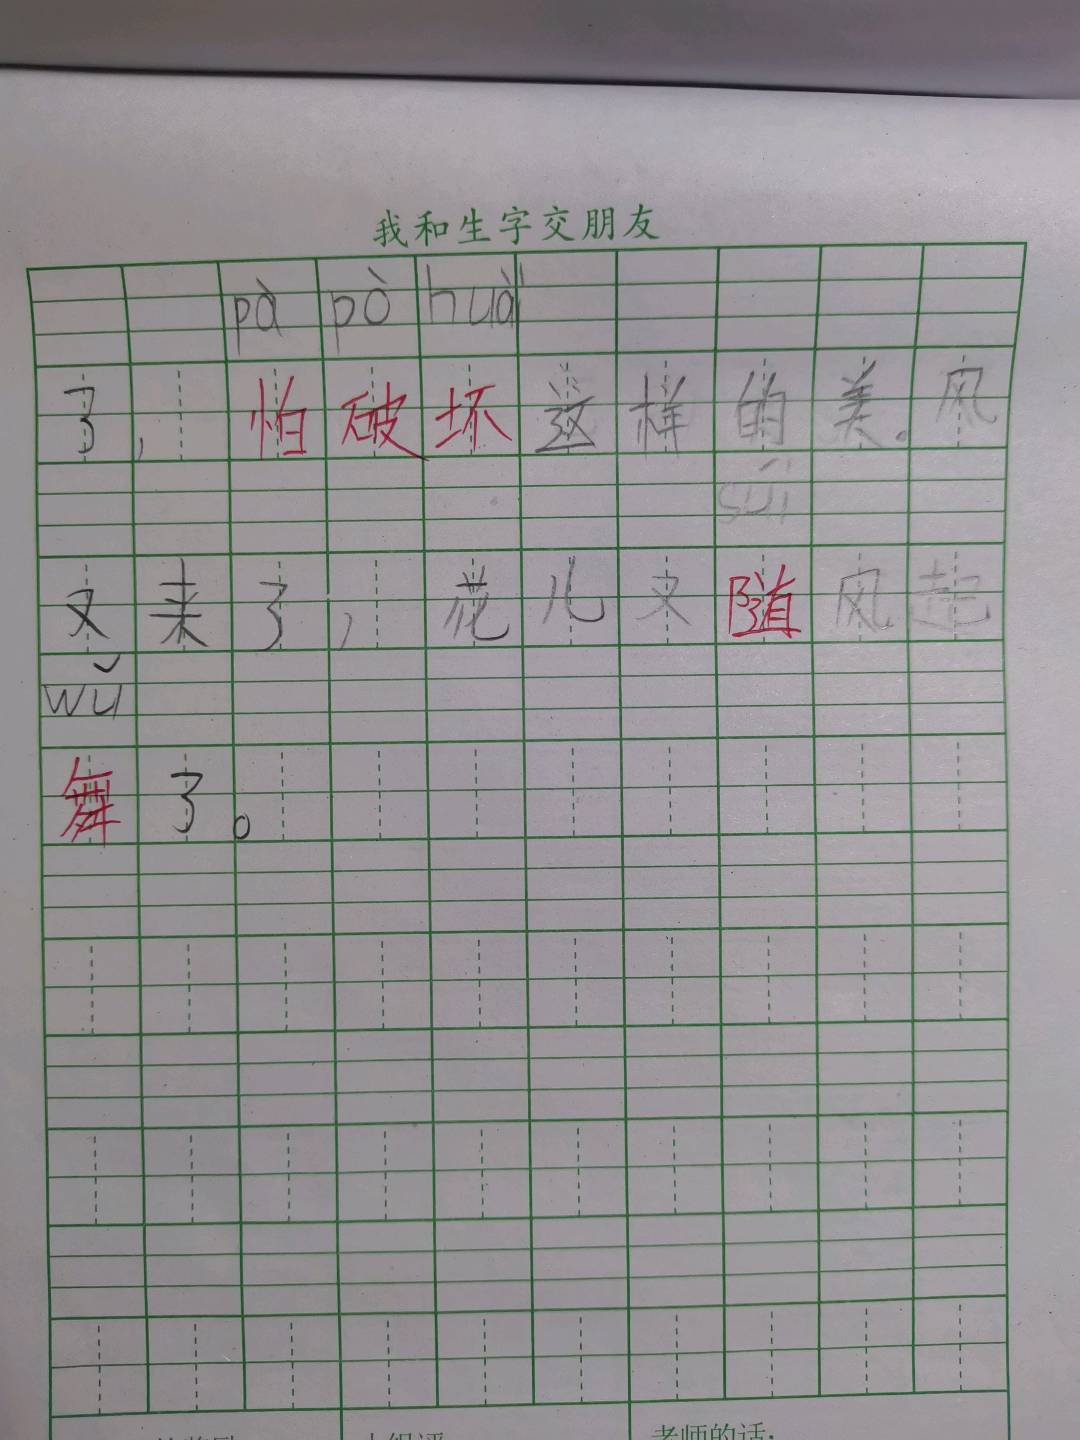 我和生字交朋友
pà pò huài
了，怕破坏这样的美。风
suí
又来了，花儿又随风起
wǔ
舞了。
老师的话：